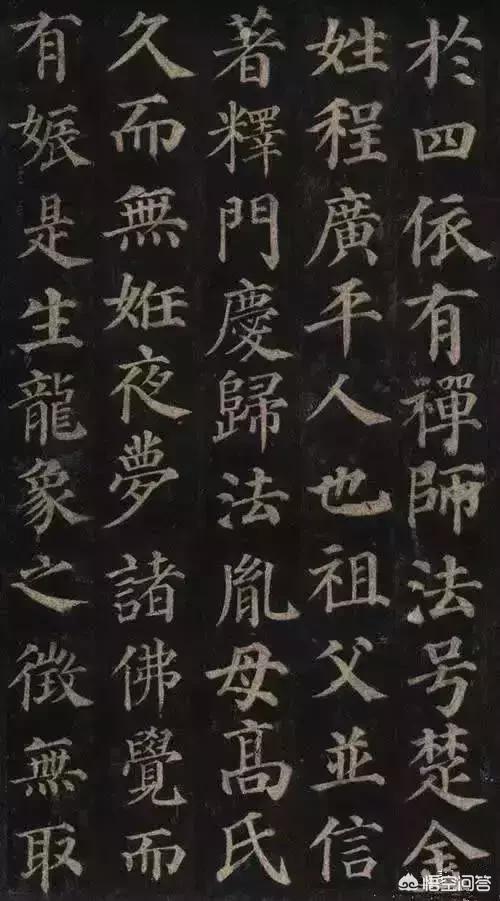 於四依有禪師法号楚金
姓程廣平人也祖父並信
著釋門慶歸法胤母髙氏
久而無姙夜夢諸佛覺而
有娠是生龍象之徵無取
悟空问答